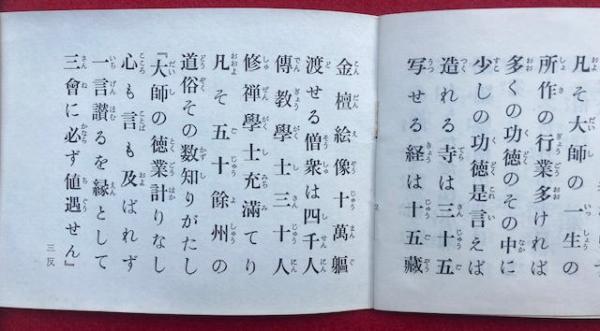 凡そ大師の一生の
所作の行業多ければ
多くの功徳のその中に
少しの功徳是言えば
造れる寺は三十五
写せる経は十五藏
2
金檀絵像十萬軀
渡せる僧衆は四千人
傳教學士三十人
修禅學士充滿てり
凡そ五十餘州の
道俗その数知りがたし
『大師の徳業計りなし
心も言も及ばれず
一言讃るを縁として
三會に必ず値遇せん』
三反